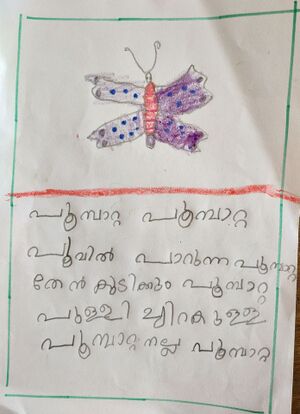 പൂമ്പാറ്റ പൂമ്പാറ്റ
പൂവിൽ പാറുന്ന പൂമ്പാറ്റ
തേൻ കുടിക്കും പൂമ്പാറ്റ
പുള്ളി ചിറകുള്ള
പൂമ്പാറ്റ നല്ല പൂമ്പാറ്റ